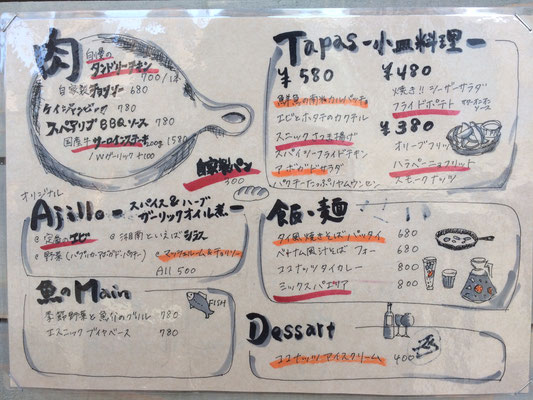 肉
自慢の
タンドリーチキン 700/1本
自家製チョリソー 680
ケイジャンピッグ 780
スペアリブBBQソース 780
国産牛サーロインステーキ 200g 1580
/Wガーリック+100
自家製パン
300
オリジナル
Ajillo -スパイス&ハーブ
ガーリックオイル煮-
定番のエビ
湘南といえばシラス
野菜
マッシュルーム&チョリソー
All 500
魚のMain
季節野菜と魚介のグリル 780
エスニックブイヤベース 780
FISH
Tapas -小皿料理-
¥580
鮮魚の南米カルパッチョ
エビとホタテのカクテル
スニックさつま揚げ
スパイシーフライドチキン
アボカドサラダ
パクチーたっぷりヤムウンセン
¥480
焼き!!シーザーサラダ
フライドポテト
サワーオニオン
ソース
¥380
オリーブフリット
ハラペーニョフリット
スモークナッツ
飯・麺
タイ風焼きそばパッタイ 680
ベトナム風汁そば フォー 680
ココナッツタイカレー 800
ミックスパエリア 800
Dessart
ココナッツアイスクリーム 400